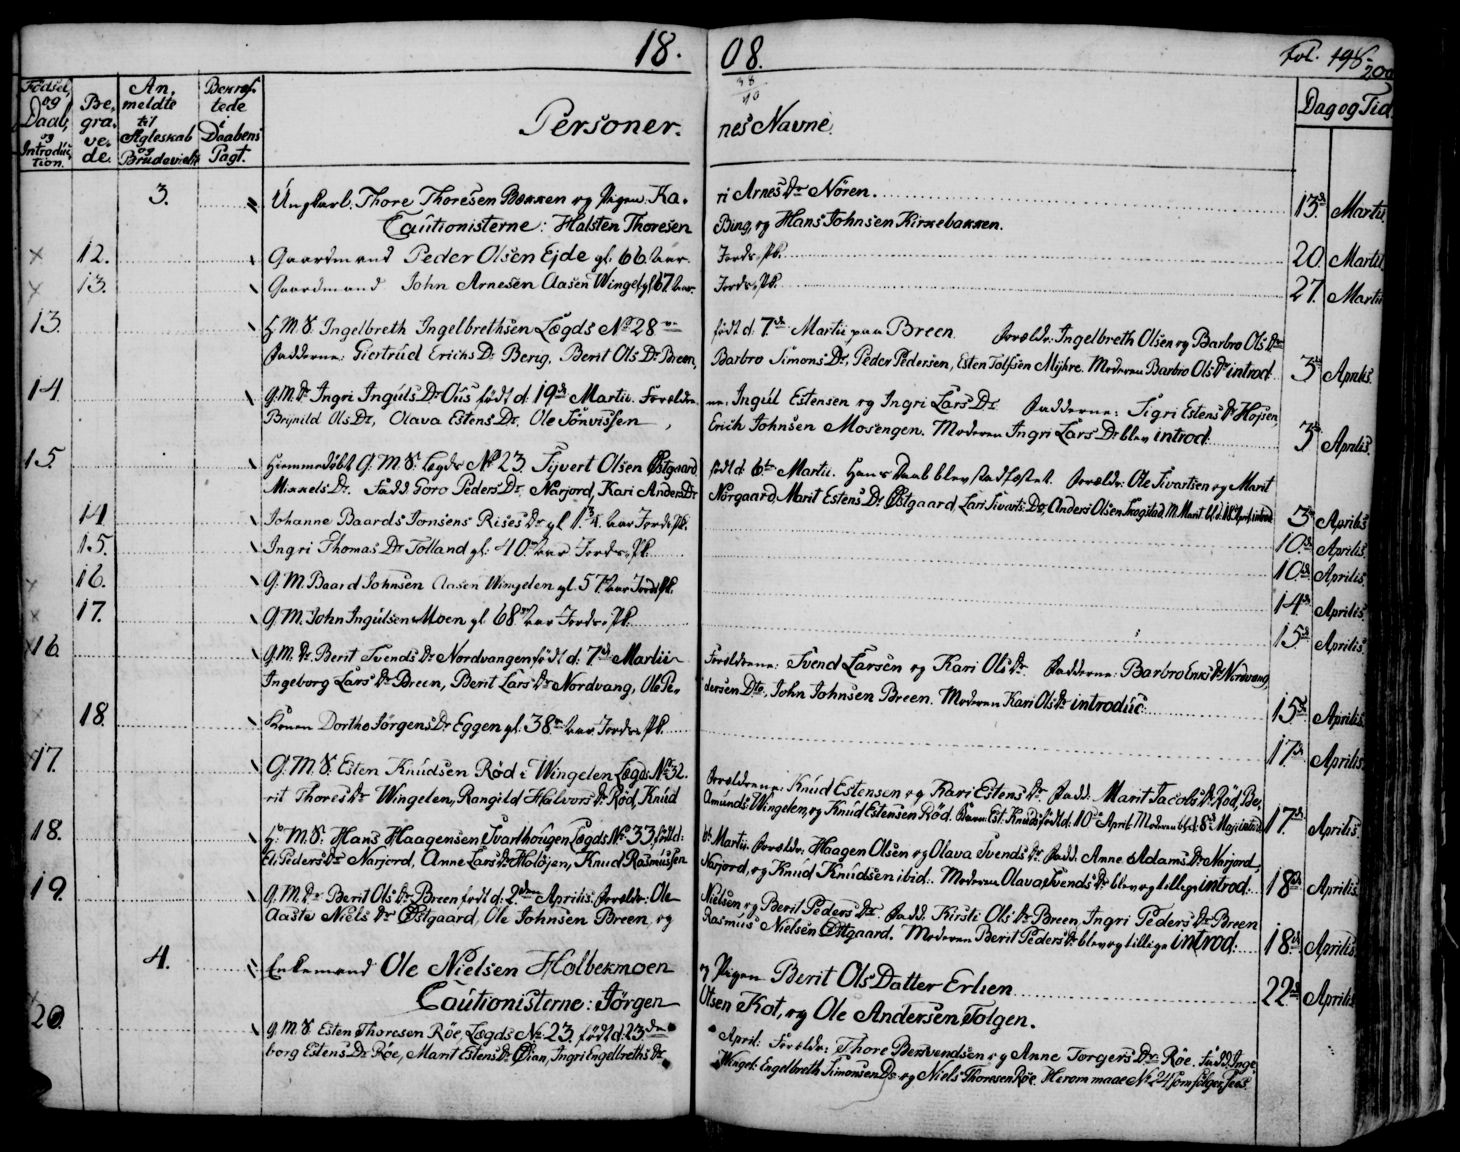 18. 08. Fol. 198. 200
38
40
Fødsel, og Daab, og Introduction. Begravede. Anmeldte til Ægteskab og Brudevielse Bekræftede i Daabens Pagt. Personernes Navne. Dag og Tid.
3. Ungkarl. Thore Thoresen Bækken og Pigen Kari Arnes Dr Nören. 13de Martii.
Cautionisterne: Halsten Thoresen Bing, og Hans Johnsen Kirkebakken.
12. Gaardmand Peder Olsen Ejde gl: 66 Aar. Jords-Pk. 20. Martii
13. Gaardmand John Arnesen Aasen Wingel gl 67 Aar. Jords-Pk. 27. Martii
13. H. M. S. Ingelbreth Ingelbrethsen Lægds No 28 født d: 7de Martii paa Breen. Forældr: Ingelbreth Olsen og Barbro Ols Dr
Fadderne: Giertrud Erichs Dr Berig, Berit Ols Dr Breen, Barbro Simons Dr, Peder Pedersen, Esten Tolfsen Myhre. Moderen Barbro Ols Dr introd. 3de Aprilis.
14. G. M. Dr Ingri Inguls Dr Ous født d. 19de Martii. Forældrene: Ingul Estensen og Ingri Lars Dr Fadderne: Sigri Estens Dr Hojsen,
Brynild Ols Dr, Olava Estens Dr. Ole Jonvissen, Erich Johnsen Mosengen. Moderen Ingri Lars Dr blev introd: 3de Aprilis.
15. Hiemmedøbt G. M. S. Lægds No 23. Syvert Olsen Østgaard født d. 6te Martii. Hans Daab blev stadfæstet. Forældr: Ole Sivartsen og Marit
Mikkels Dr. Fadd Goro Peders Dr. Narjord, Kari Anders Dr Nörgaard, Marit Estens Dr Østgaard, Lars Sivarts: Do, Anders Olsen Skogstad. M: Marit bl: d: 18 April introd. 3de Aprilis
14 Johanne Baards Jonsens Rises Dr gl 1 3/4 Aar Jords-Pk. 10de Aprilis
15. Ingri Thomas Dr Tolland gl: 40 Aar Jords-Pk. 10de Aprilis.
16. G. M. Baard Johnsen Aasen Wingelen gl 57 Aar Jords Pk. 14de Aprilis.
17. G. M. John Ingulsen Moen gl 68 Aar Jords-Pk. 15de Aprilis.
16. G. M. Dr. Berit Svends Dr Nordvangen født d: 7de Martii Forældrene: Svend Larsen og Kari Ols Dr Fadderne: Barbro Eriks Dr Nordvang,
Ingeborg Lars Dr Breen, Berit Lars Dr Nordvang, Ole Pedersen Dto, John Johnsen Breen. Moderen Kari Ols Dr introduc: 15de Aprilis.
18. Konen Dorthe Jörgens Dr Eggen gl. 38 Aar Jords Pk. 17de Aprilis.
17. G. M. S. Esten Knudsen Rød i Wingelen Lægds No 32. Forældrene: Knud Estensen og Kari Estens Dr Fadd. Marit Jacobs Dr Rød, Berit
Thores Dr Wingelen, Rangild Halvors Dr Rød, Knud Amunds Wingelen, og Knud Estensen Rød. Barn: Est: Knuds født d. 10de April Moderen bl: d: 8de Maji introd. 17de Aprilis
18. H: M: S: Hans Haagensen Svarthougen Lægds No 33. født d: 6te Martii. Forældr: Haagen Olsen og Olava Svends Dr. Fadd. Anne Adams Dr Narjord,
Eli Peders Dr Narjord, Anne Lars Dr Holöjen, Knud Rasmussen Narjord, og Knud Knudsen ibid:. Moderen Olava Svends Dr blev og tillige introd: 18de Aprilis
19. G. M. Dr Berit Ols Dr Breen født d: 2den Aprilis. Forældr: Ole Nielsen og Berit Peders Dr. Fadd. Kirsti Ols Dr Breen, Ingri Peders Dr Breen
Aaste Niels Dr Østgaard, Ole Johnsen Breen, og Rasmus Nielsen Østgaard. Moderen Berit Peders Dr blev og tillige introd: 18de Aprilis
4. Enkemand Ole Nielsen Holbekmoen og Pigen Berit Ols Datter Erlien 22de Aprilis
Cautionisterne: Jörgen Olsen Kot, og Ole Andersen Tolgen.
20 G. M. S. Esten Thoresen Røe, Lægds No 23. født d: 23de April: Forældr: Thore Bersvendsen og Anne Torgers Dr Røe. Fadd Ingeborg
Estens Dr Røe, Marit Estens Dr Øian, Ingri Engelbreths Dr Wingel: Engelbreth Simonsen Do og Niels Thoresen Røe. Herom maae No 21 som følger, sees